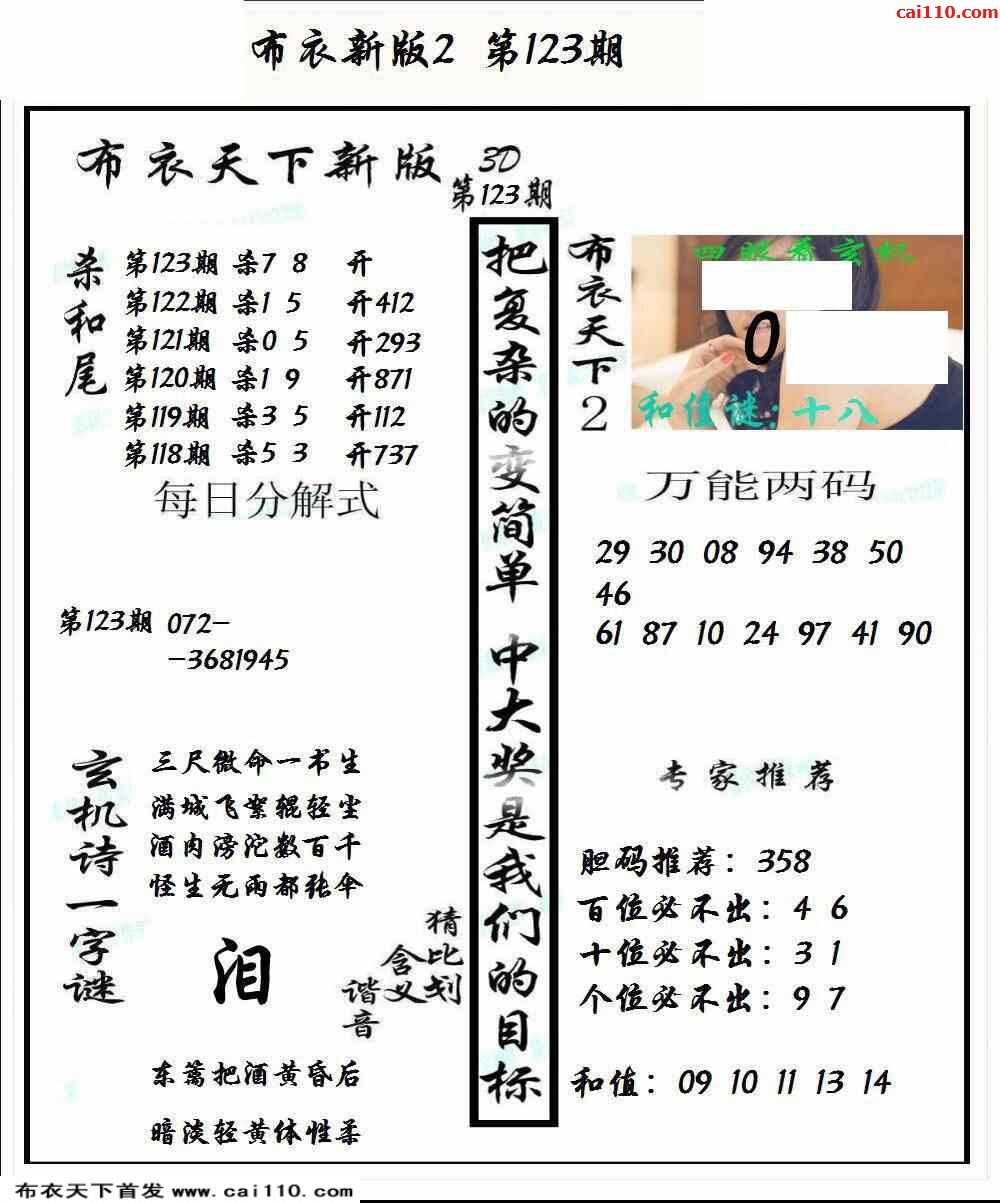 cai110.com
布衣新版2 第123期
布衣天下新版
3D
第123期
杀和尾
第123期 杀7 8 开
第122期 杀1 5 开412
第121期 杀0 5 开293
第120期 杀1 9 开871
第119期 杀3 5 开112
第118期 杀5 3 开737
每日分解式
第123期 072-
-3681945
玄机诗一字谜
三尺微命一书生
满城飞絮辊轻尘
酒肉滂沱数百千
怪生无雨都张伞
泪
猜比划
含义
谐音
东篱把酒黄昏后
暗淡轻黄体性柔
把复杂的变简单 中大奖是我们的目标
布衣天下2
四眼看玄机
0
和值谜:十八
万能两码
29 30 08 94 38 50
46
61 87 10 24 97 41 90
专家推荐
胆码推荐：358
百位必不出：4 6
十位必不出：3 1
个位必不出：9 7
和值：09 10 11 13 14
布衣天下首发 www.cai110.com